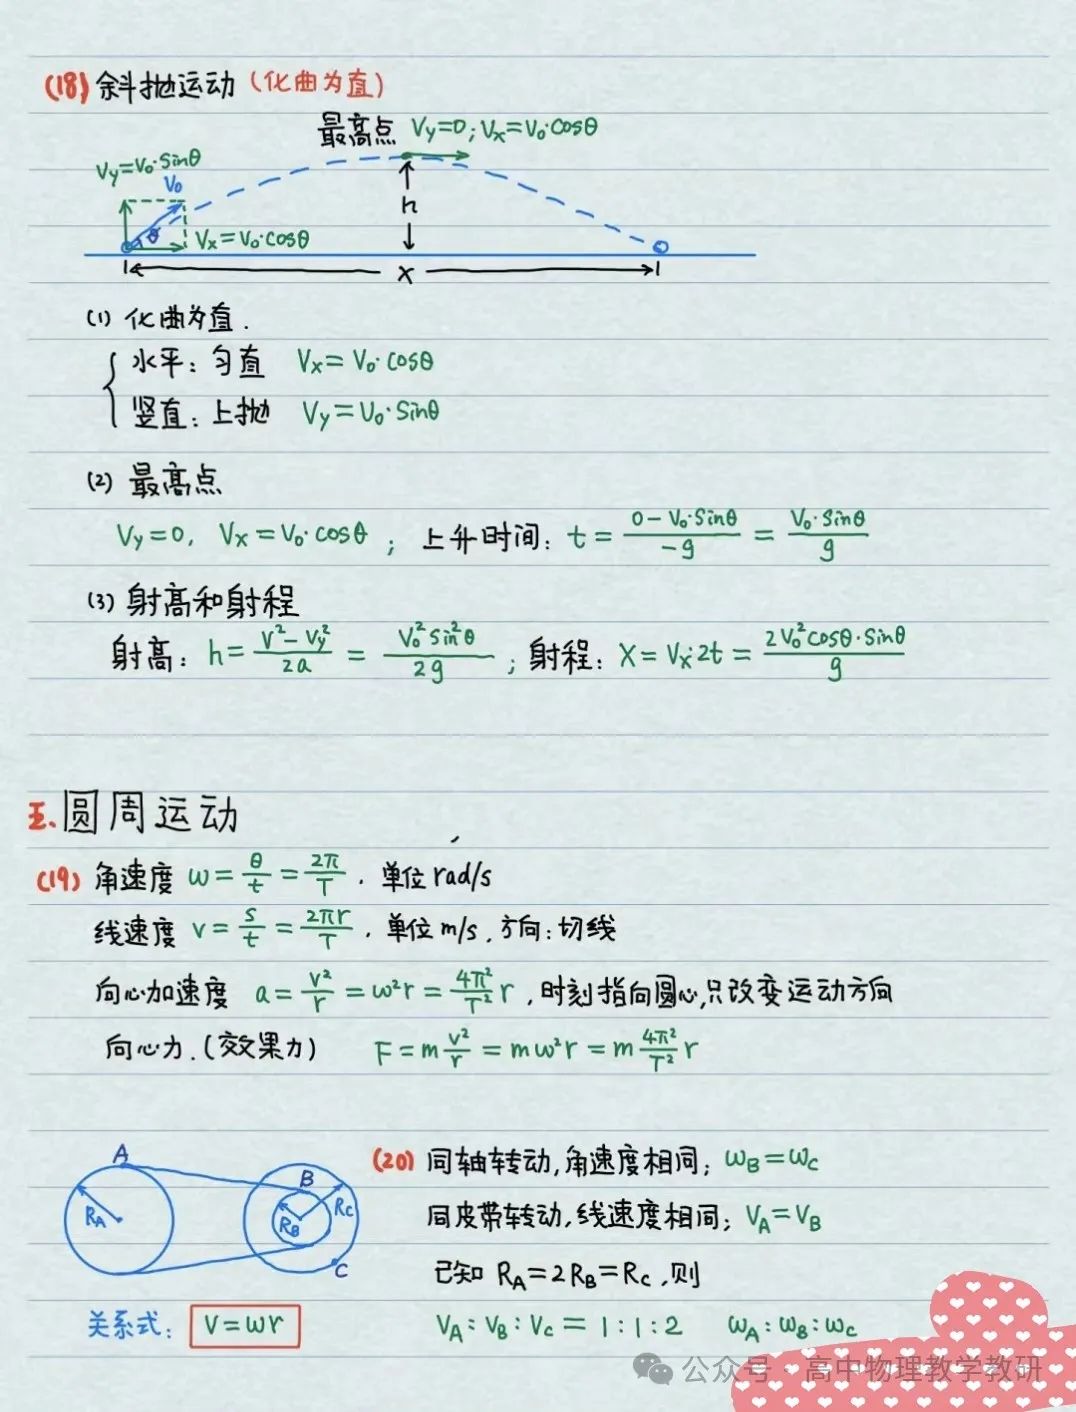 (18) 斜抛运动 (化曲为直)
最高点 Vy=0; Vx=V₀·cosθ
Vy=V₀·sinθ
V₀
θ
Vx=V₀·cosθ
h
x
(1) 化曲为直.
水平: 匀直 Vx=V₀·cosθ
竖直: 上抛 Vy=V₀·sinθ
(2) 最高点
Vy=0, Vx=V₀·cosθ ; 上升时间: t=(0-V₀·sinθ)/(-g)=(V₀·sinθ)/g
(3) 射高和射程
射高: h=(V²-Vy²)/2a=(V₀²sin²θ)/2g ; 射程: X=Vx·2t=(2V₀²cosθ·sinθ)/g
五.圆周运动
(19) 角速度 ω=θ/t=2π/T . 单位 rad/s
线速度 v=s/t=2πr/T . 单位 m/s . 方向: 切线
向心加速度 a=v²/r=ω²r=(4π²/T²)r , 时刻指向圆心,只改变运动方向
向心力.(效果力) F=m v²/r=mω²r=m(4π²/T²)r
A
B
RA
RB
RC
C
(20) 同轴转动,角速度相同; ωB=ωC
同皮带转动,线速度相同; VA=VB
已知 RA=2RB=RC ,则
关系式: V=ωr
VA:VB:VC=1:1:2 ωA:ωB:ωC
公众号 · 高中物理教学教研